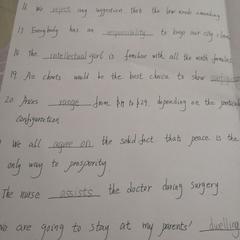 16 We reject any suggestion that the law needs amending
17 Everybody has an responsibility to keep our city clean
18 The intellectual girl is familiar with all the math formulas
19 Pie charts would be the best choice to show
20 Prices range from $17 to $29, depending on the particular
configuration
We all agree on the solid fact that peace is the
only way to prosperity
The nurse assists the doctor during surgery
we are going to stay at my parents' dwelling